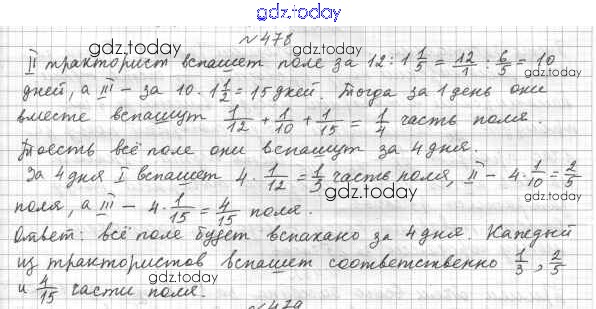 gdz.today
№478
gdz.today
II тракторист вспашет поле за 12 : 1 1/5 = 12/1 : 6/5 = 10
gdz.today
дней, а III – за 10 · 1 1/2 = 15 дней. Тогда за 1 день они
вместе вспашут 1/12 + 1/10 + 1/15 = 1/4 часть поля.
gdz.today
gdz.today
Тоесть всё поле они вспашут за 4 дня.
За 4 дня I вспашет 4 · 1/12 = 1/3 часть поля, II – 4 · 1/10 = 2/5
gdz.today
поля, а III – 4 · 1/15 = 4/15 поля.
gdz.today
Ответ: всё поле будет вспахано за 4 дня. Каждый
из трактористов вспашет соответственно 1/3, 2/5
gdz.today
gdz.today
и 4/15 части поля.
№479